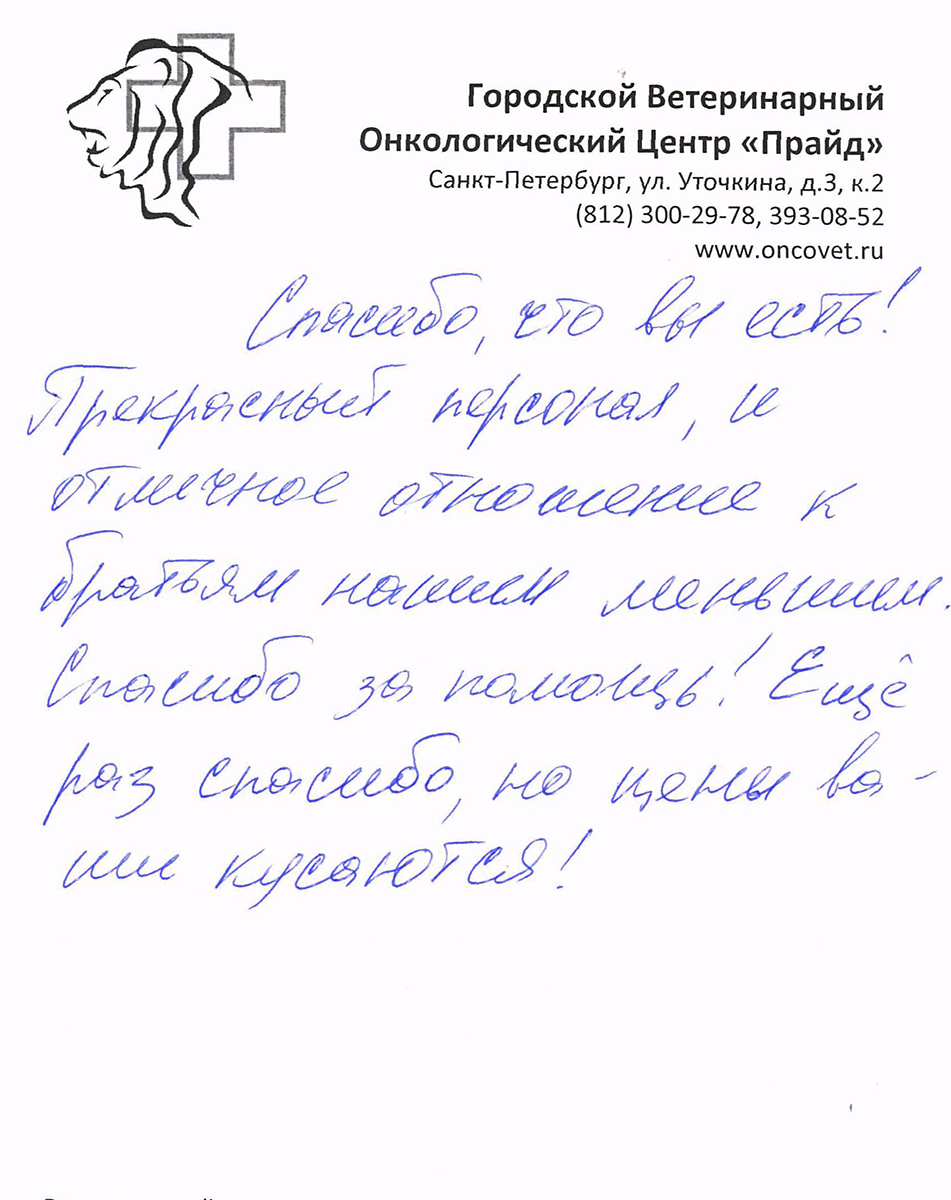 Городской Ветеринарный
Онкологический Центр «Прайд»
Санкт-Петербург, ул. Уточкина, д.3, к.2
(812) 300-29-78, 393-08-52
www.oncovet.ru
Спасибо, что вы есть!
Прекрасный персонал, и
отличное отношение к
братьям нашим меньшим.
Спасибо за помощь! Ещё
раз спасибо, но цены ва-
ши кусаются!